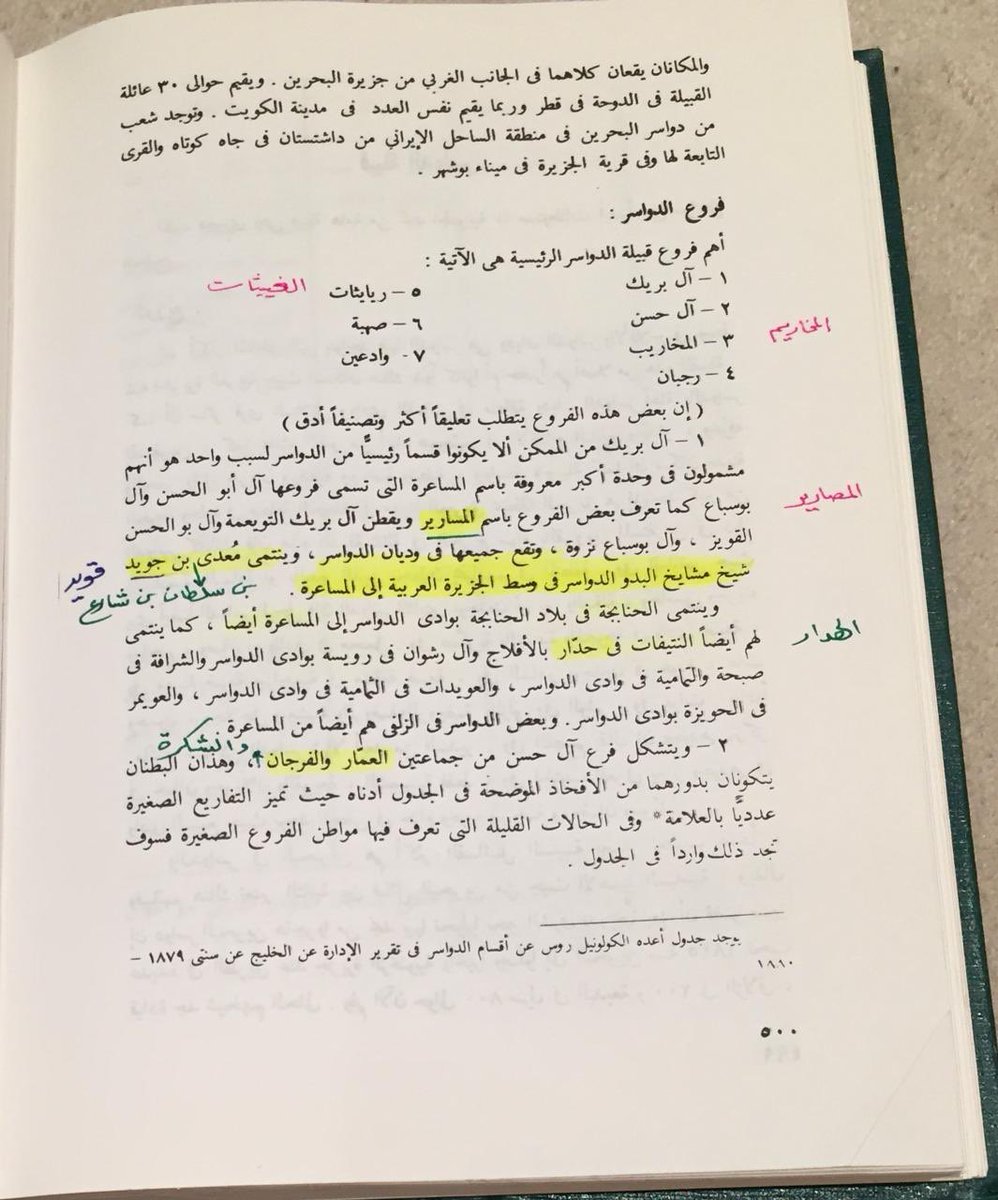 والمكانان يقعان كلاهما فى الجانب الغربي من جزيرة البحرين . ويقيم حوالى ٣٠ عائلة
القبيلة فى الدوحة فى قطر وربما يقيم نفس العدد فى مدينة الكويت . وتوجد شعب
من دواسر البحرين فى منطقة الساحل الإيراني من داشتستان فى جاه كوتاه والقرى
التابعة لها وفى قرية الجزيرة فى ميناء بوشهر .
فروع الدواسر :
أهم فروع قبيلة الدواسر الرئيسية هى الآتية :
١ – آل بريك
٥ – ريايثات الغييثات
٢ – آل حسن
٦ – صهبة
٣ – المخاريب المخاريم
٧ – وادعين
٤ – رجبان
( إن بعض هذه الفروع يتطلب تعليقاً أكثر وتصنيفاً أدق )
١ – آل بريك من الممكن ألا يكونوا قسماً رئيسيًّا من الدواسر لسبب واحد هو أنهم
مشمولون فى وحدة أكبر معروفة باسم المساعرة التى تسمى فروعها آل أبو الحسن وآل
بوسباع كما تعرف بعض الفروع باسم المسارير ويقطن آل بريك التويعمة وآل بو الحسن
المصارير
القويز ، وآل بوسباع نزوة ، وتقع جميعها فى وديان الدواسر ، وينتمى مُعدى بن جويد
قويد
شيخ مشايخ البدو الدواسر فى وسط الجزيرة العربية إلى المساعرة .
بن سلطان بن شارع
وينتمى الحنابجة فى بلاد الحنابجة بوادى الدواسر إلى المساعرة أيضاً ، كما ينتمى
لهم أيضاً النتيفات فى حدّار بالأفلاج وآل رشوان فى رويسة بوادى الدواسر والشرافة فى
الهدار
صبحة والتمامية فى وادى الدواسر ، والعويدات فى الثمامية فى وادى الدواسر ، والعويمر
فى الحويزة بوادى الدواسر . وبعض الدواسر فى الزلفى هم أيضاً من المساعرة
والشكرة
٢ – ويتشكل فرع آل حسن من جماعتين العمّار والفرجان ، وهذان البطنان
يتكونان بدورهما من الأفخاذ الموضحة فى الجدول أدناه حيث تميز التفاريع الصغيرة
عدديًّا بالعلامة* وفى الحالات القليلة التى تعرف فيها مواطن الفروع الصغيرة فسوف
تجد ذلك وارداً فى الجدول .
يوجد جدول أعده الكولونيل روس عن أقسام الدواسر فى تقرير الإدارة عن الخليج عن سنتى ١٨٧٩ –
١٨٨٠
٥٠٠